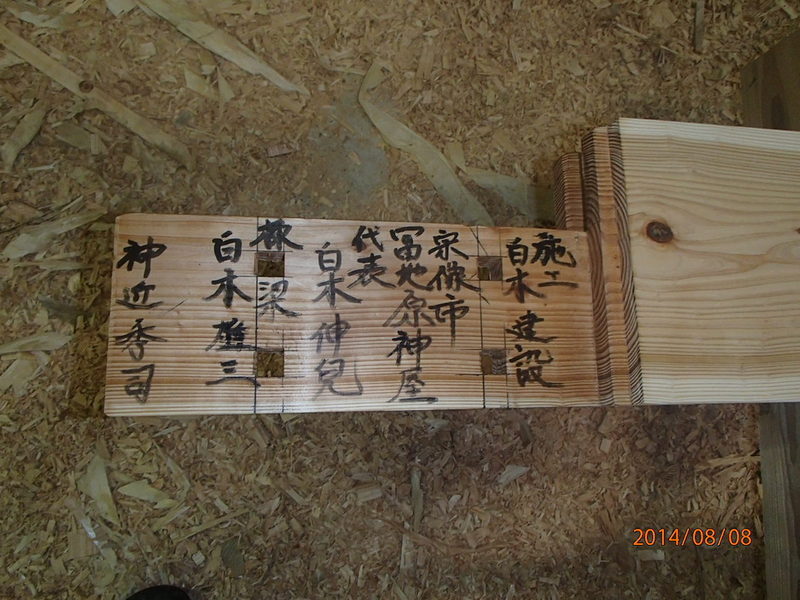 施工
白木建設
宗像市
冨地原神屋
代表
白木仲兒
梁
白木雄三
神近秀司
2014/08/08